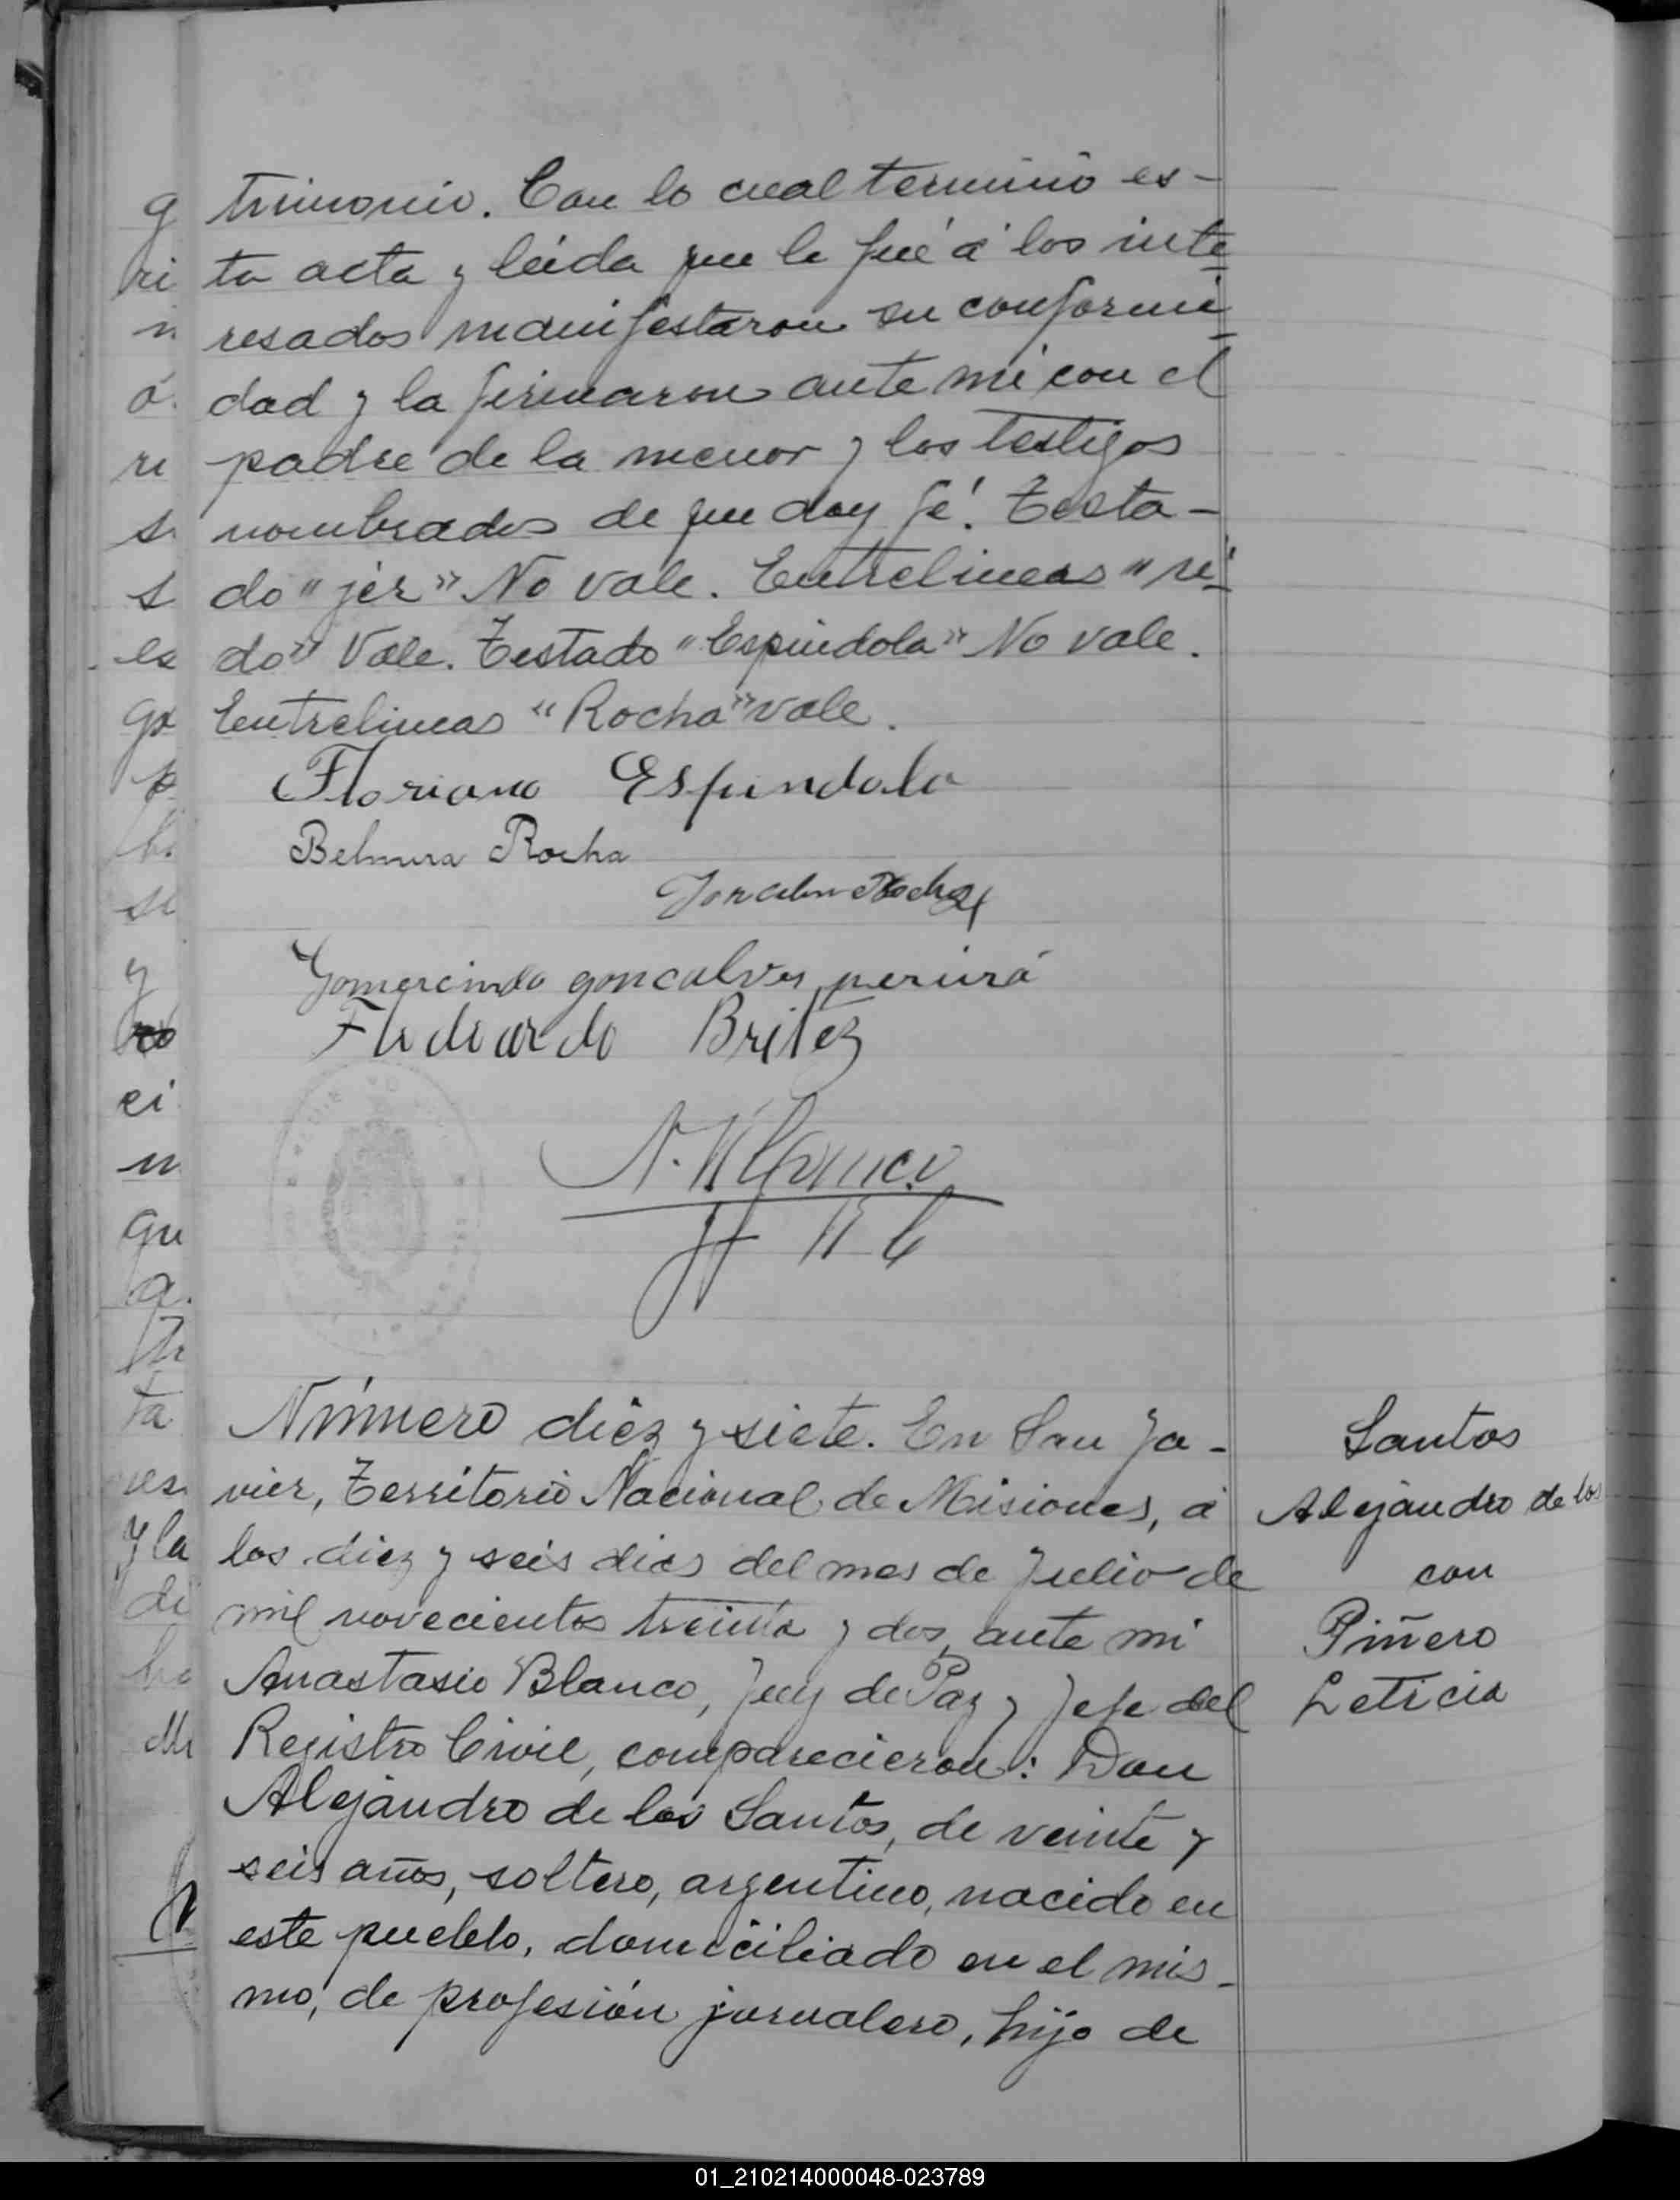 trimonio. Con lo cual terminó es-
ta acta y leída que le fué á los inte
resados manifestaron su conformi
dad y la firmaron ante mi con el
padre de la menor y los testigos
nombrados de que doy fé. Testa-
do "jer" No vale. Entrelineas "ri
do" Vale. Testado "Espindola" No vale.
Entrelineas "Rocha" vale.
Floriano Espindola
Belmira Rocha
Rocha
Gomercindo goncalves pereira
Britez
A. Blanco
Número diez y siete. En San Ja-
vier, Territorio Nacional de Misiones, á
los diez y seis dias del mes de Julio de
mil novecientos treinta y dos, ante mi
Anastasio Blanco, Juez de Paz y Jefe del
Registro Civil, comparecieron: Don
Alejandro de los Santos, de veinte y
seis años, soltero, argentino, nacido en
este pueblo, domiciliado en el mis-
mo, de profesión jornalero, hijo de
Santos
Alejandro de los
con
Piñero
Leticia
01_210214000048-023789